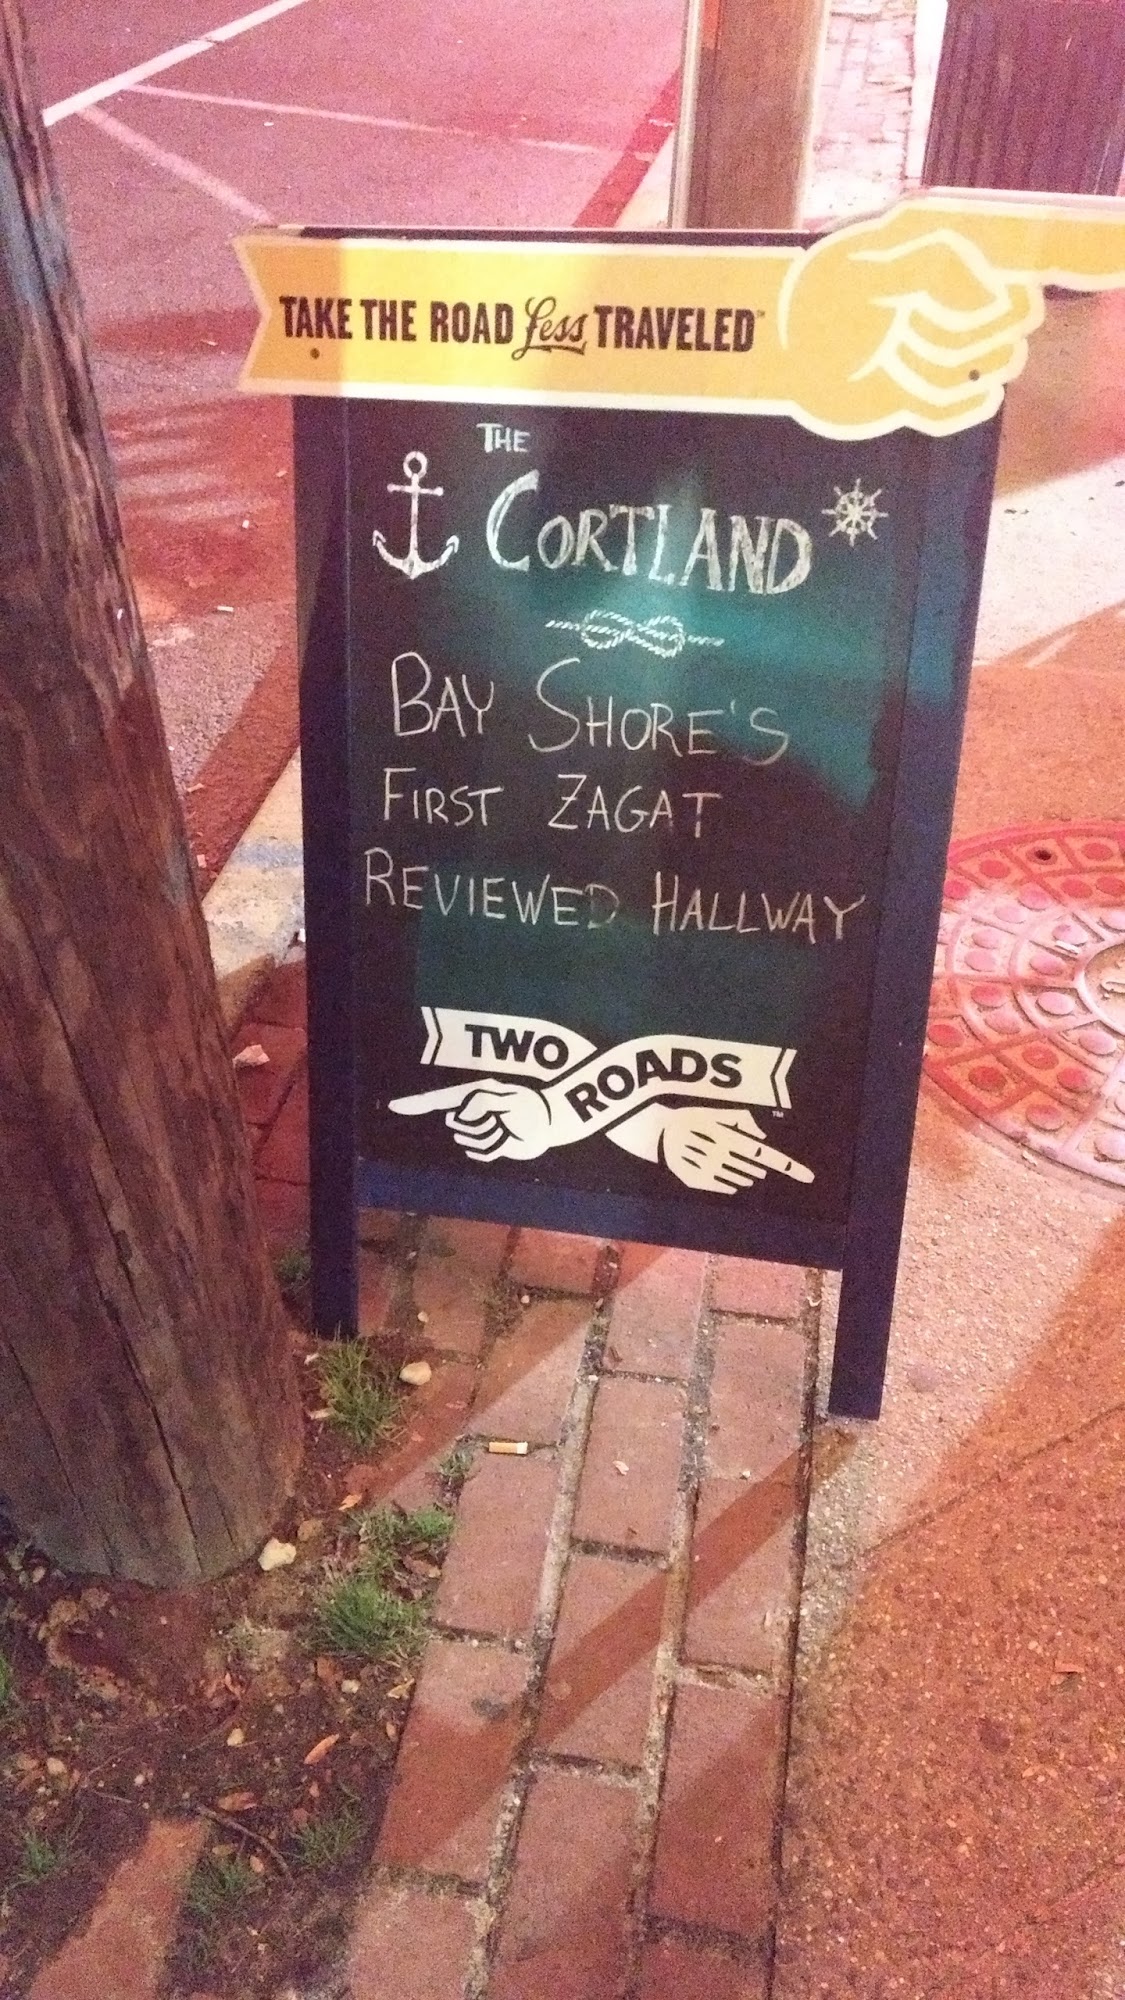 TAKE THE ROAD Less TRAVELED™
THE
CORTLAND
BAY SHORE'S
FIRST ZAGAT
REVIEWED HALLWAY
TWO
ROADS™